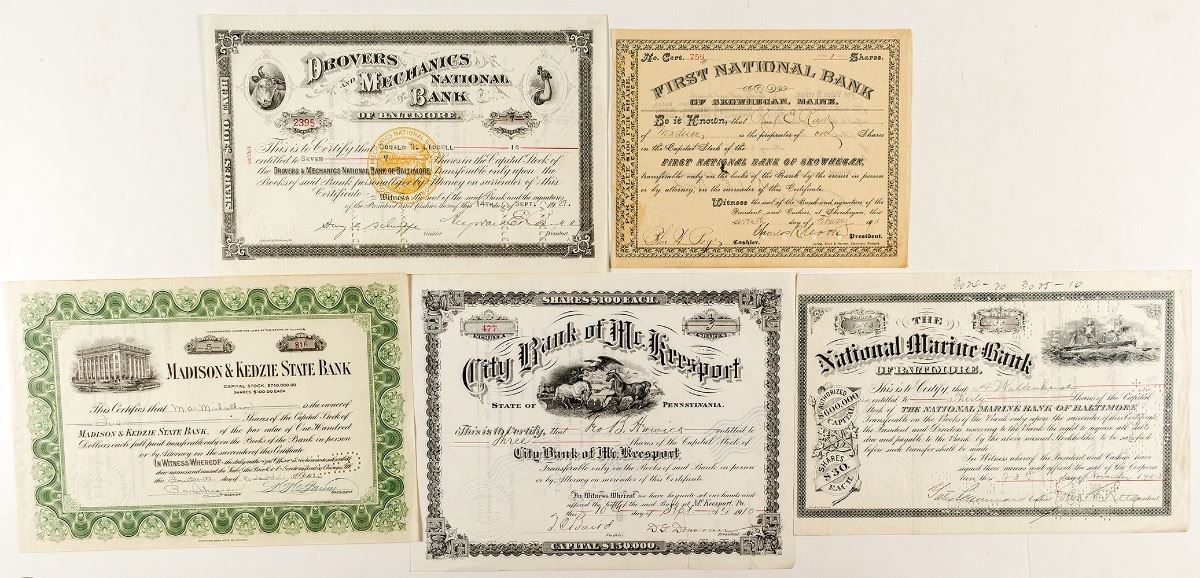 DROVERS
AND MECHANICS
NATIONAL
BANK
OF BALTIMORE.
2395
SHARES $100 EACH
This is to Certify that DONALD N. LIDDELL is
entitled to SEVEN Shares in the Capital Stock of
THE DROVERS & MECHANICS NATIONAL BANK OF BALTIMORE, Transferable only upon the
Books of said Bank personally or by Attorney on surrender of this
Certificate. Witness the seal of the said Bank and the signatures
of the President and Cashier this 14TH day of SEPT. 1927.
Cashier President
No. Cert. 759 1 Shares.
FIRST NATIONAL BANK
OF SKOWHEGAN, MAINE.
PAR VALUE $100 PER SHARE
Be it Known, that
of Madison is the proprietor of one Shares
in the Capital Stock of the
FIRST NATIONAL BANK OF SKOWHEGAN,
transferable only on the books of the Bank by the owner in person
or by attorney, on the surrender of this Certificate.
Witness the seal of the Bank and the signature of the
President, and Cashier, at Skowhegan, this
day of February
President.
Cashier.
INCORPORATED UNDER THE LAWS OF THE STATE OF ILLINOIS
816
MADISON & KEDZIE STATE BANK
CAPITAL STOCK, $750,000.00
SHARES $100.00 EACH
This Certifies that is the owner of
Shares of the Capital Stock of
MADISON & KEDZIE STATE BANK, of the par value of One Hundred
Dollars each full paid transferable only on the Books of the Bank in person
or by Attorney on the surrender of this Certificate.
IN WITNESS WHEREOF
SHARES $100 EACH.
477
NUMBER
SHARES
City Bank of McKeesport
STATE OF PENNSTIVANIA.
This is to Certify, that Geo B Herwick entitled to
Three Shares of the Capital Stock of
City Bank of McKeesport
Transferable only on the Books of said Bank in person
or by Attorney on surrender of this Certificate.
In Witness Whereof we have hereunto set our hands and
affixed the seal of the said Bank at McKeesport, Pa.
this day of 1910
Cashier President
CAPITAL $150,000.
3024-20 3025-10
THE
National Marine Bank
OF BALTIMORE.
AUTHORIZED
CAPITAL
SHARES
$30
EACH
This is to Certify that
entitled to Thirty Shares of the Capital
Stock of THE NATIONAL MARINE BANK OF BALTIMORE,
Transferable on the Books of the Bank only upon the surrender of this Certificate
the President and Directors reserving to the Bank the right to require all debts
due and payable to the Bank by the above named Stockholder to be satisfied
before such transfer shall be made.
In Witness whereof the President and Cashier have
signed their names and affixed the seal of the Corpora-
tion this day of November
Cashier President